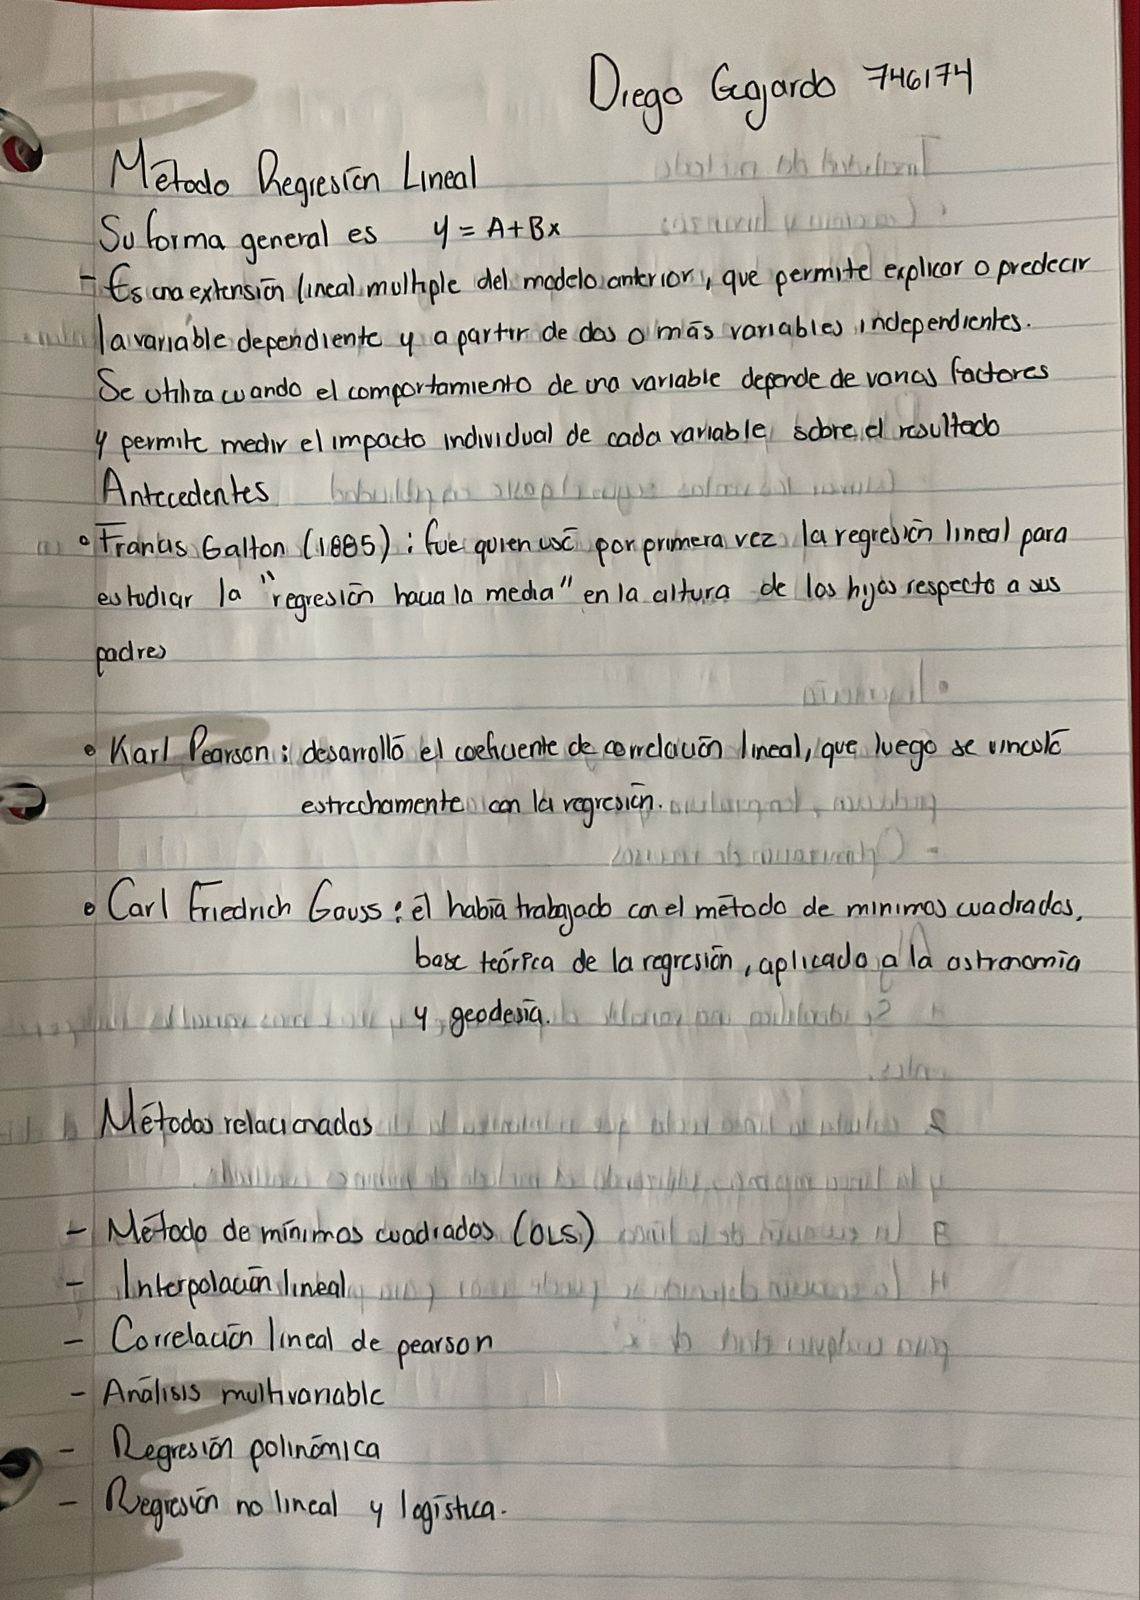 Diego Gajardo 746174
Método Regresión Lineal
Su forma general es y = A+Bx
- Es una extensión lineal multiple del modelo anterior, que permite explicar o predecir
la variable dependiente y a partir de dos o más variables independientes.
Se utiliza cuando el comportamiento de una variable depende de varios factores
y permite medir el impacto individual de cada variable sobre el resultado
Antecedentes
• Francis Galton (1885) : fue quien usó por primera vez la regresión lineal para
estudiar la "regresión hacia la media" en la altura de los hijos respecto a sus
padres
• Karl Pearson : desarrolló el coeficiente de correlación lineal, que luego se vinculó
estrechamente con la regresión.
• Carl Friedrich Gauss : él había trabajado con el método de minimos cuadrados,
base teórica de la regresión, aplicado a la astronomia
y geodesía.
Métodos relacionados
- Método de mínimos cuadrados (OLS)
- Interpolación lineal
- Correlación lineal de pearson
- Análisis multivariable
- Regresión polinómica
- Regresión no lineal y logística.